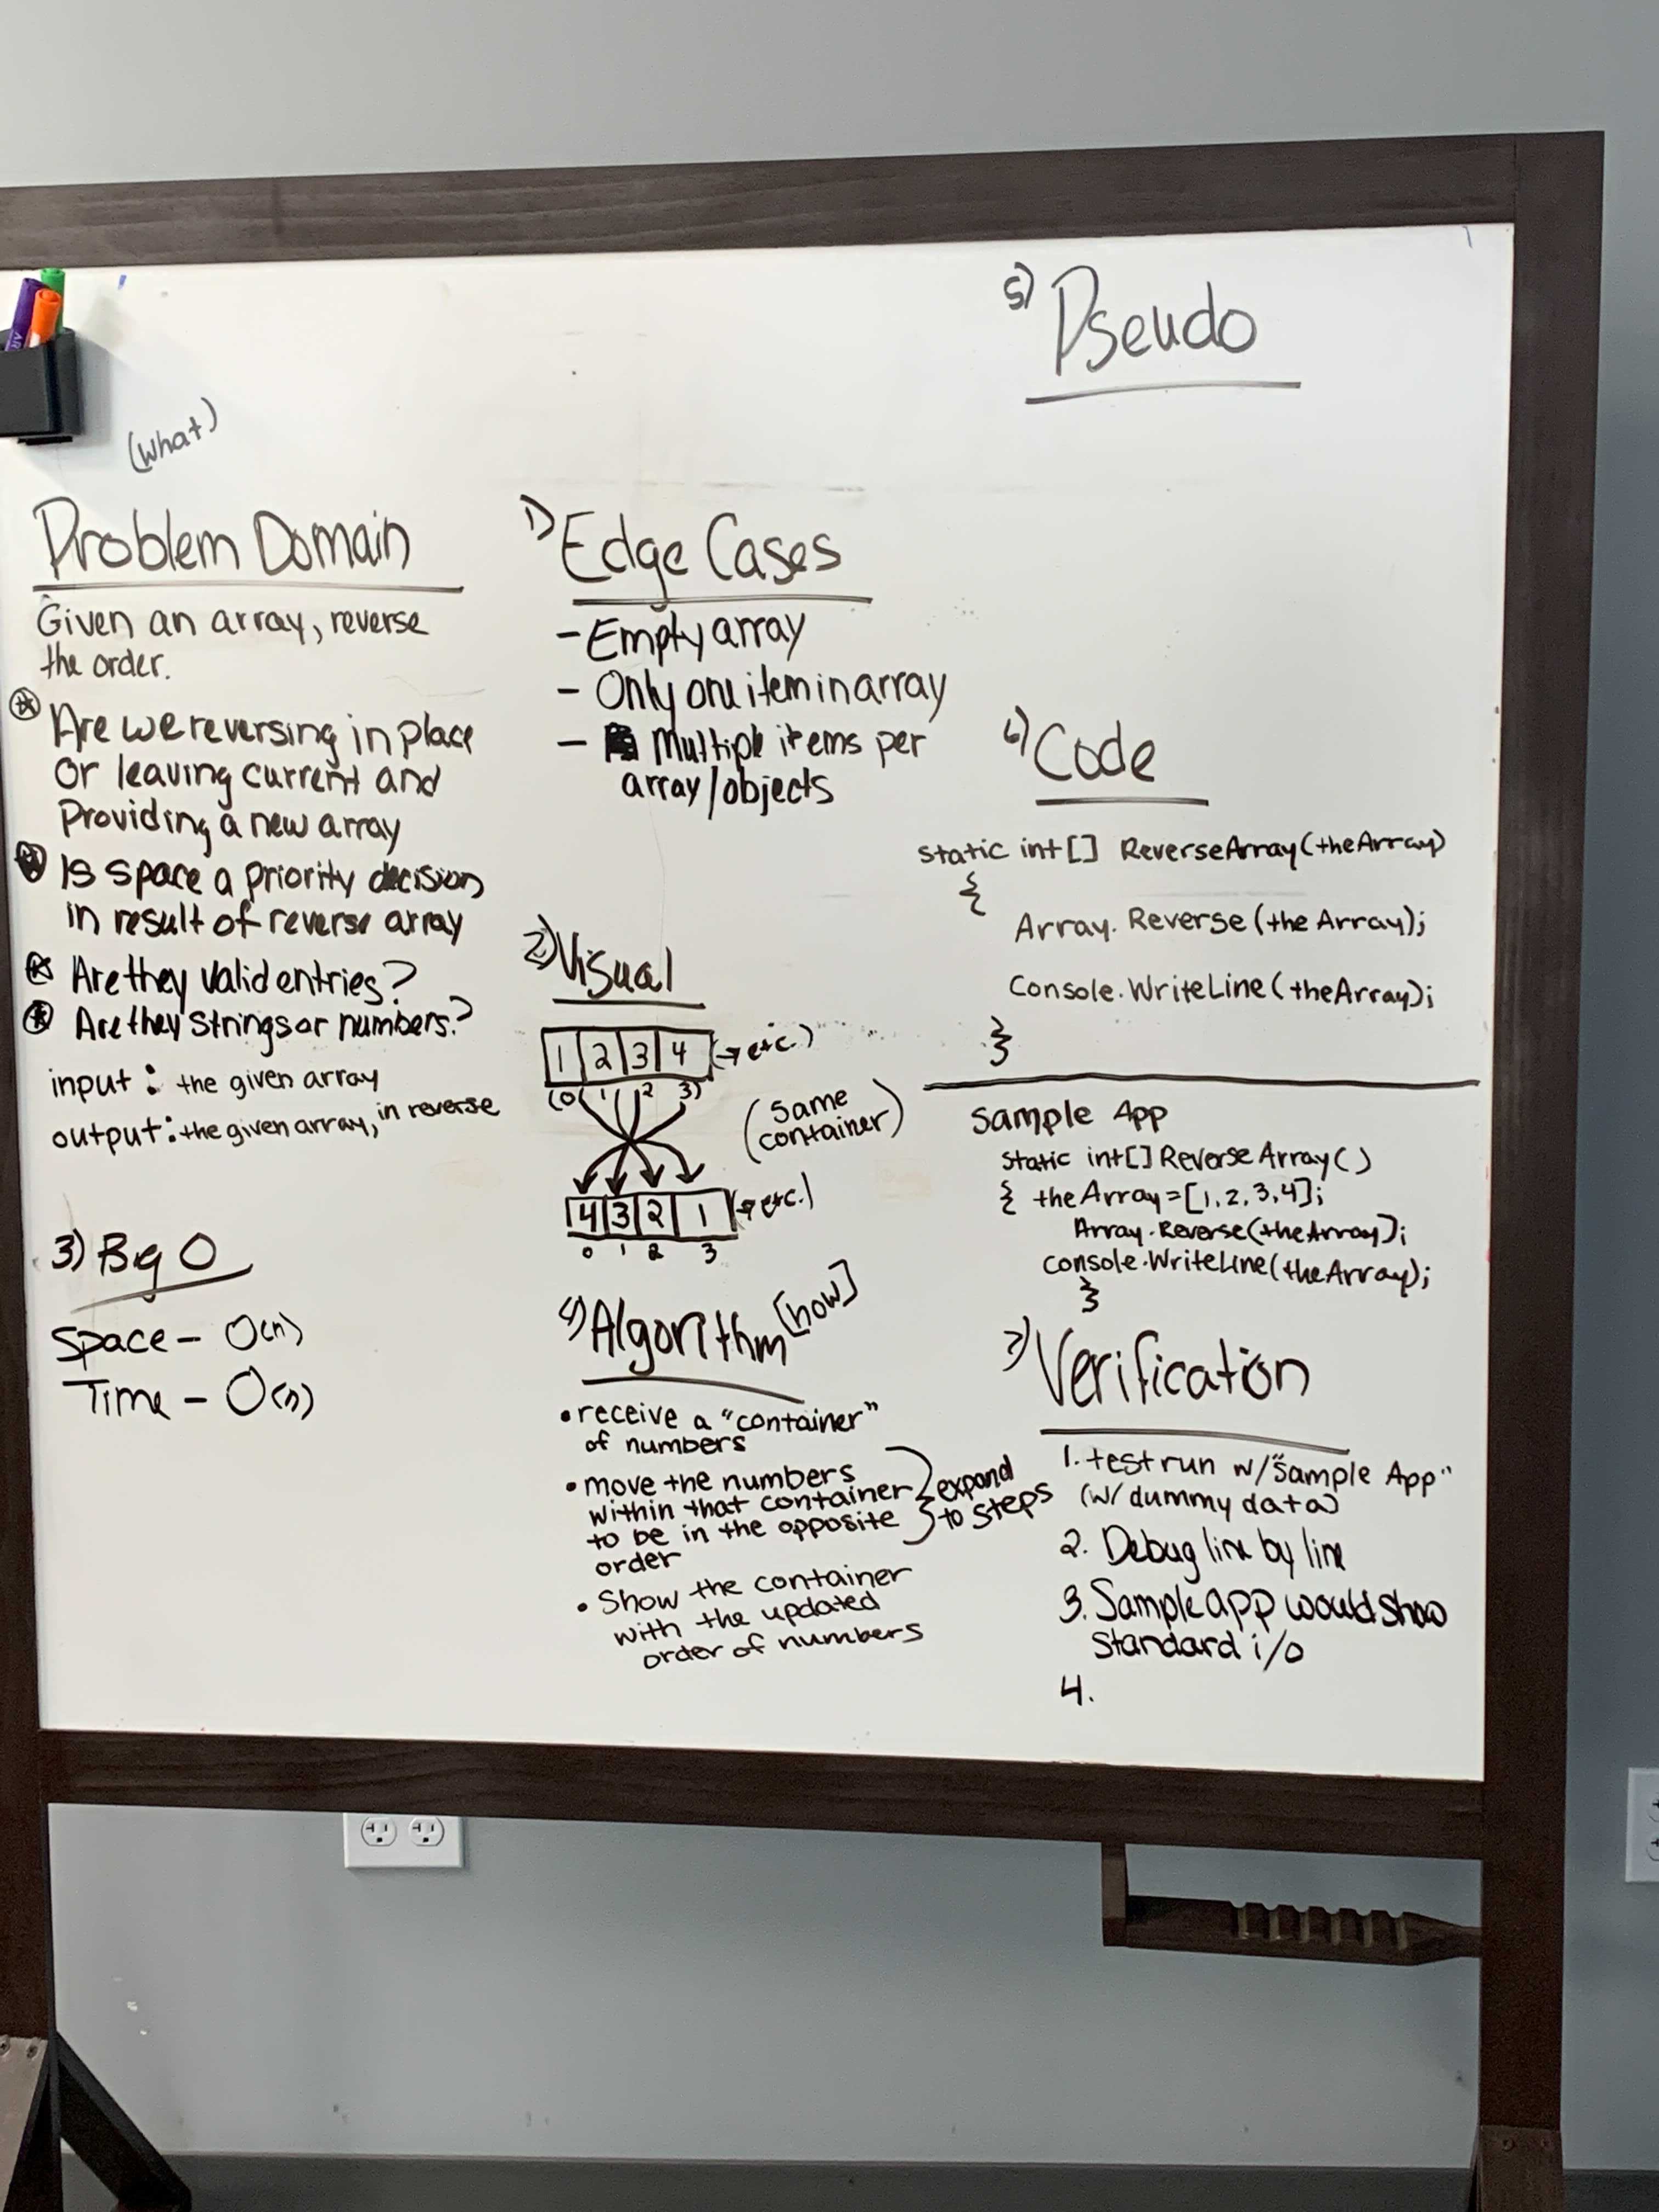 (What)
Problem Domain
Given an array, reverse
the order.
Are we reversing in place
or leaving current and
Providing a new array
Is space a priority decision
in result of reverse array
Are they valid entries?
Are they strings or numbers?
input: the given array
output: the given array, in reverse
3) Big O
Space - O(n)
Time - O(n)
1) Edge Cases
- Empty array
- Only one item in array
- Multiple items per
array/objects
2) Visual
1 2 3 4 (→ etc.)
(0 1 2 3)
(same
container)
4 3 2 1 (→ etc.)
0 1 2 3
4) Algorithm [how]
• receive a "container"
of numbers
• move the numbers
within that container
to be in the opposite
order
} expand
to steps
• Show the container
with the updated
order of numbers
5) Pseudo
6) Code
static int[] ReverseArray(theArray)
{
Array.Reverse(theArray);
Console.WriteLine(theArray);
}
Sample App
static int[] ReverseArray()
{ theArray=[1,2,3,4];
Array.Reverse(theArray);
console.WriteLine(theArray);
}
7) Verification
1. test run w/"Sample App"
(w/ dummy data)
2. Debug line by line
3. Sample app would show
standard i/o
4.